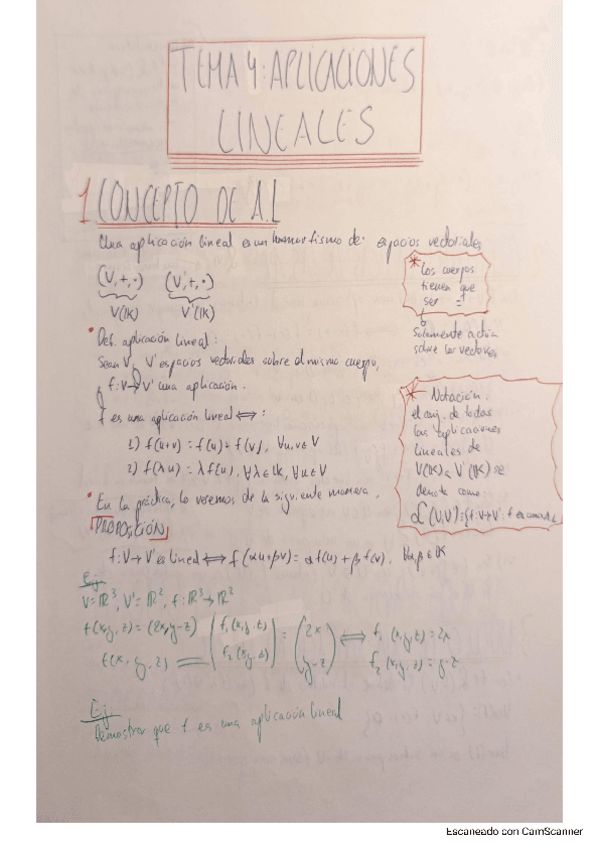 TEMA 4: APLICACIONES
LINEALES
1 CONCEPTO DE A.L
Una aplicación lineal es un homorfismo de espacios vectoriales
(V,+,·) (V',+,·)
V(IK) V'(IK)
* Los cuerpos
tienen que
ser =
Solamente actúa
sobre los vectores
• Def. aplicación lineal:
Sean V y V' espacios vectoriales sobre el mismo cuerpo,
y f: V→V' una aplicación.
f es una aplicación lineal ⟺:
1) f(u+v) = f(u)+f(v), ∀u,v∈V
2) f(λu) = λf(u), ∀λ∈IK, ∀u∈V
* Notación:
el conj. de todas
las aplicaciones
lineales de
V(IK) a V'(IK) se
denota como:
• En la práctica, lo veremos de la siguiente manera.
PROPOSICIÓN
f: V→V' es lineal ⟺ f(αu+βv) = αf(u)+βf(v). ∀α,β∈IK
Ej:
V=IR³, V'=IR², f: IR³→IR²
f(x,y,z) = (2x, y-z)
f(x,y,z) = (f₁(x,y,z) f₂(x,y,z)) = (2x y-z) ⟺ f₁(x,y,z)=2x
f₂(x,y,z)=y-z
Ej:
Demostrar que f es una aplicación lineal
Escaneado con CamScanner